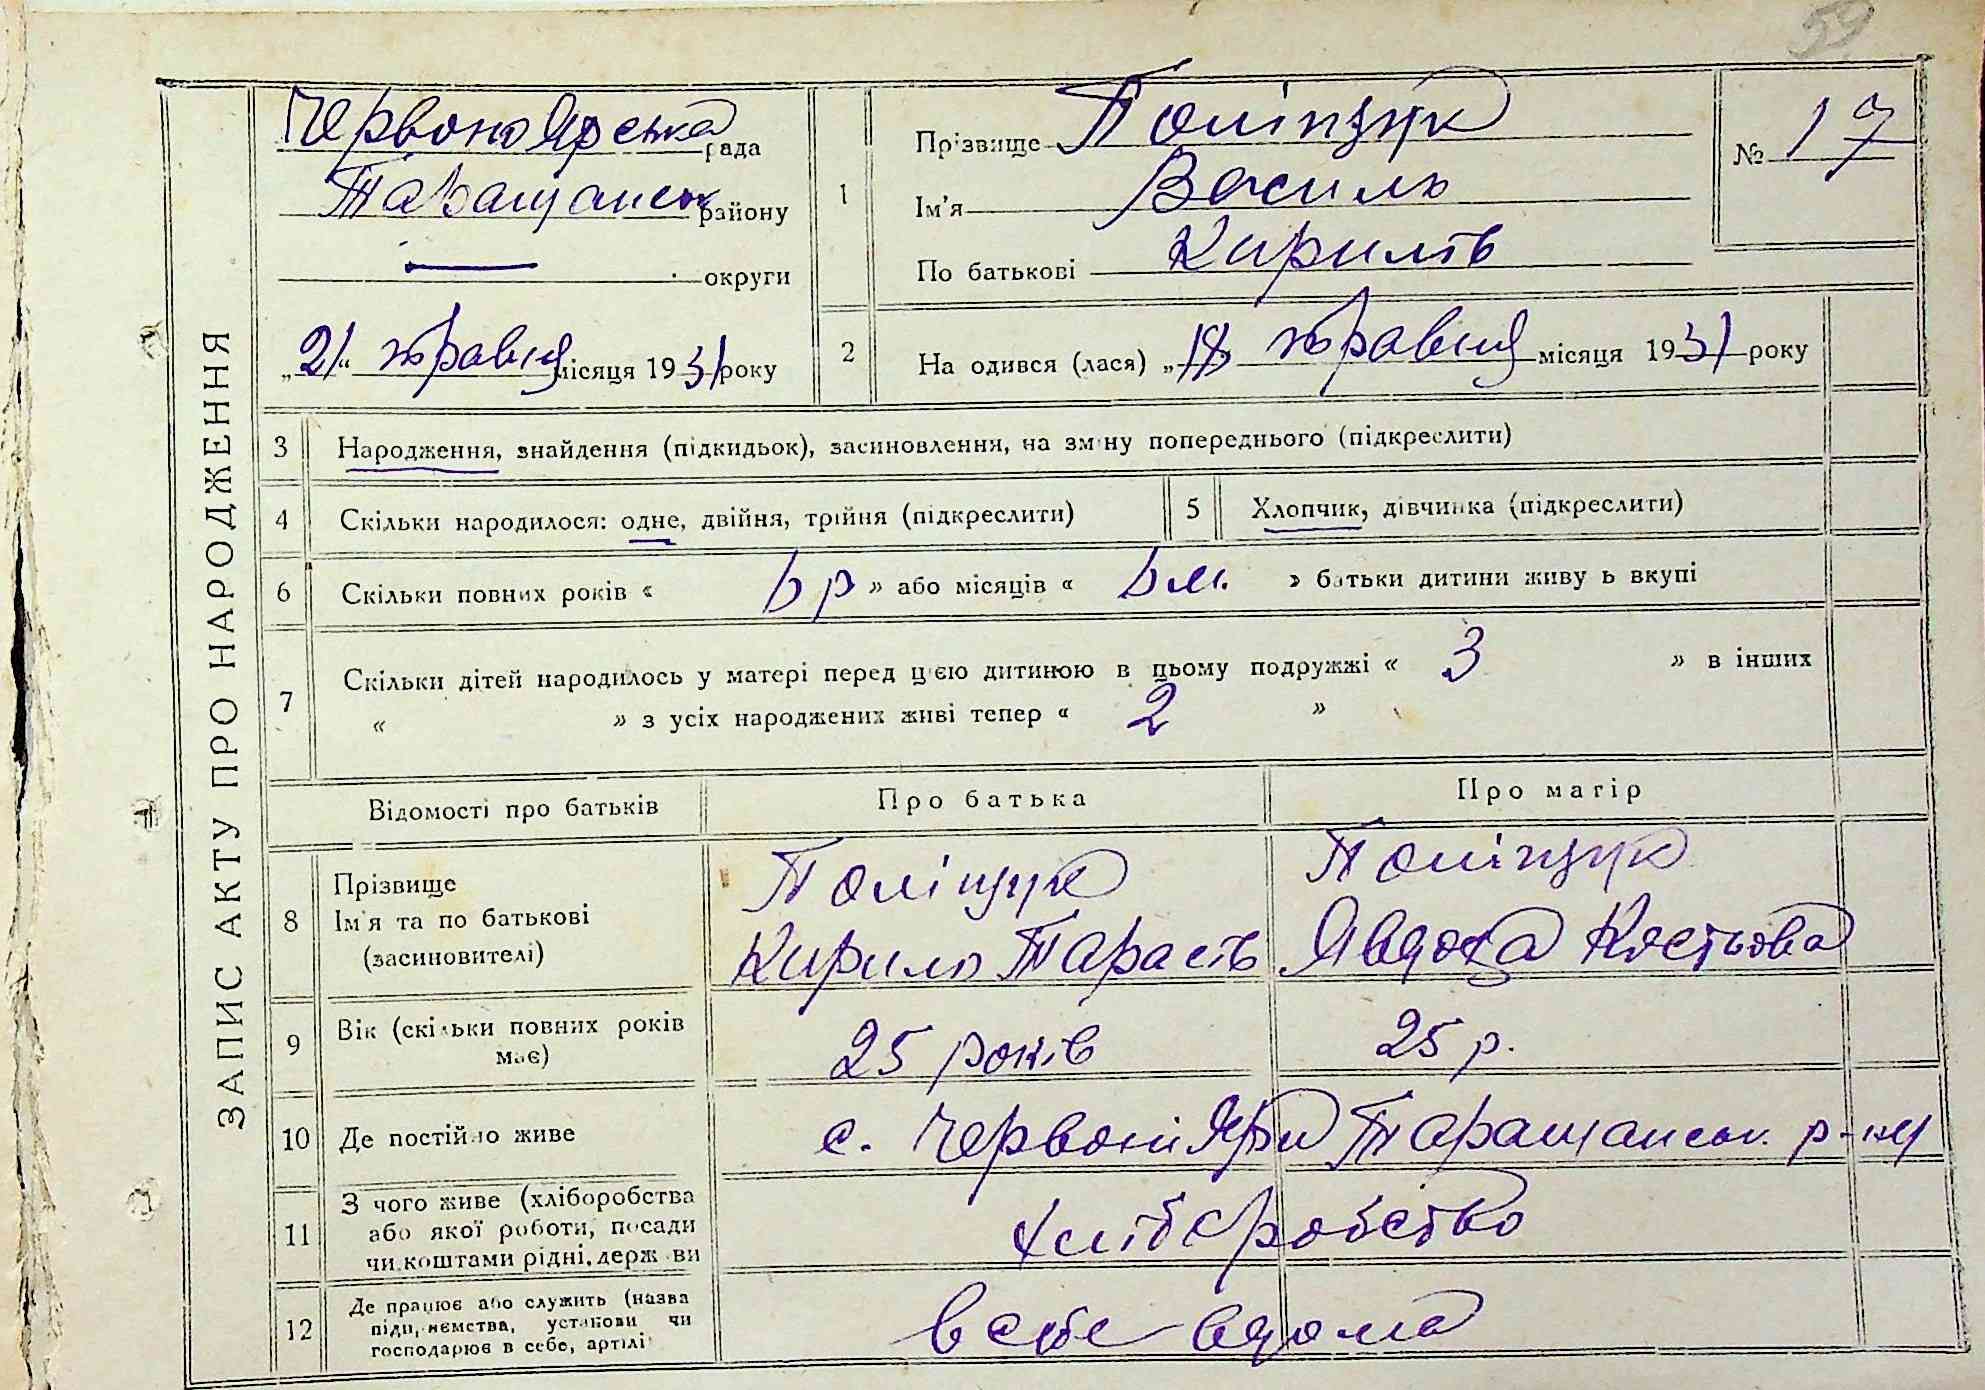 59
ЗАПИС АКТУ ПРО НАРОДЖЕННЯ
ЧервоноЯрська рада
Таращанськ району
округи
„21“ травня місяця 1931 року
1
Прізвище Поліщук
Ім'я Василь
По батькові Кирилів
№ 17
2
На одився (лася) „18 травня місяця 1931 року
3
Народження, знайдення (підкидьок), засиновлення, на зміну попереднього (підкреслити)
4
Скільки народилося: одне, двійня, трійня (підкреслити)
5
Хлопчик, дівчинка (підкреслити)
6
Скільки повних років « 6 р » або місяців « 6 м. » батьки дитини живу ь вкупі
7
Скільки дітей народилось у матері перед цією дитиною в цьому подружжі « 3 » в інших
« » з усіх народжених живі тепер « 2 »
Відомості про батьків
Про батька
Про матір
8
Прізвище
Ім'я та по батькові
(засиновителі)
Поліщук
Кирило Тарасів
Поліщук
Явдоха Костьова
9
Вік (скільки повних років
має)
25 років
25 р.
10
Де постійно живе
с. Червоні Яри Таращанськ. р-ну
11
З чого живе (хліборобства
або якої роботи, посади
чи коштами рідні, держ ви
хліборобство
12
Де працює або служить (назва
підприємства, установи чи
господарює в себе, артілі
в себе вдома